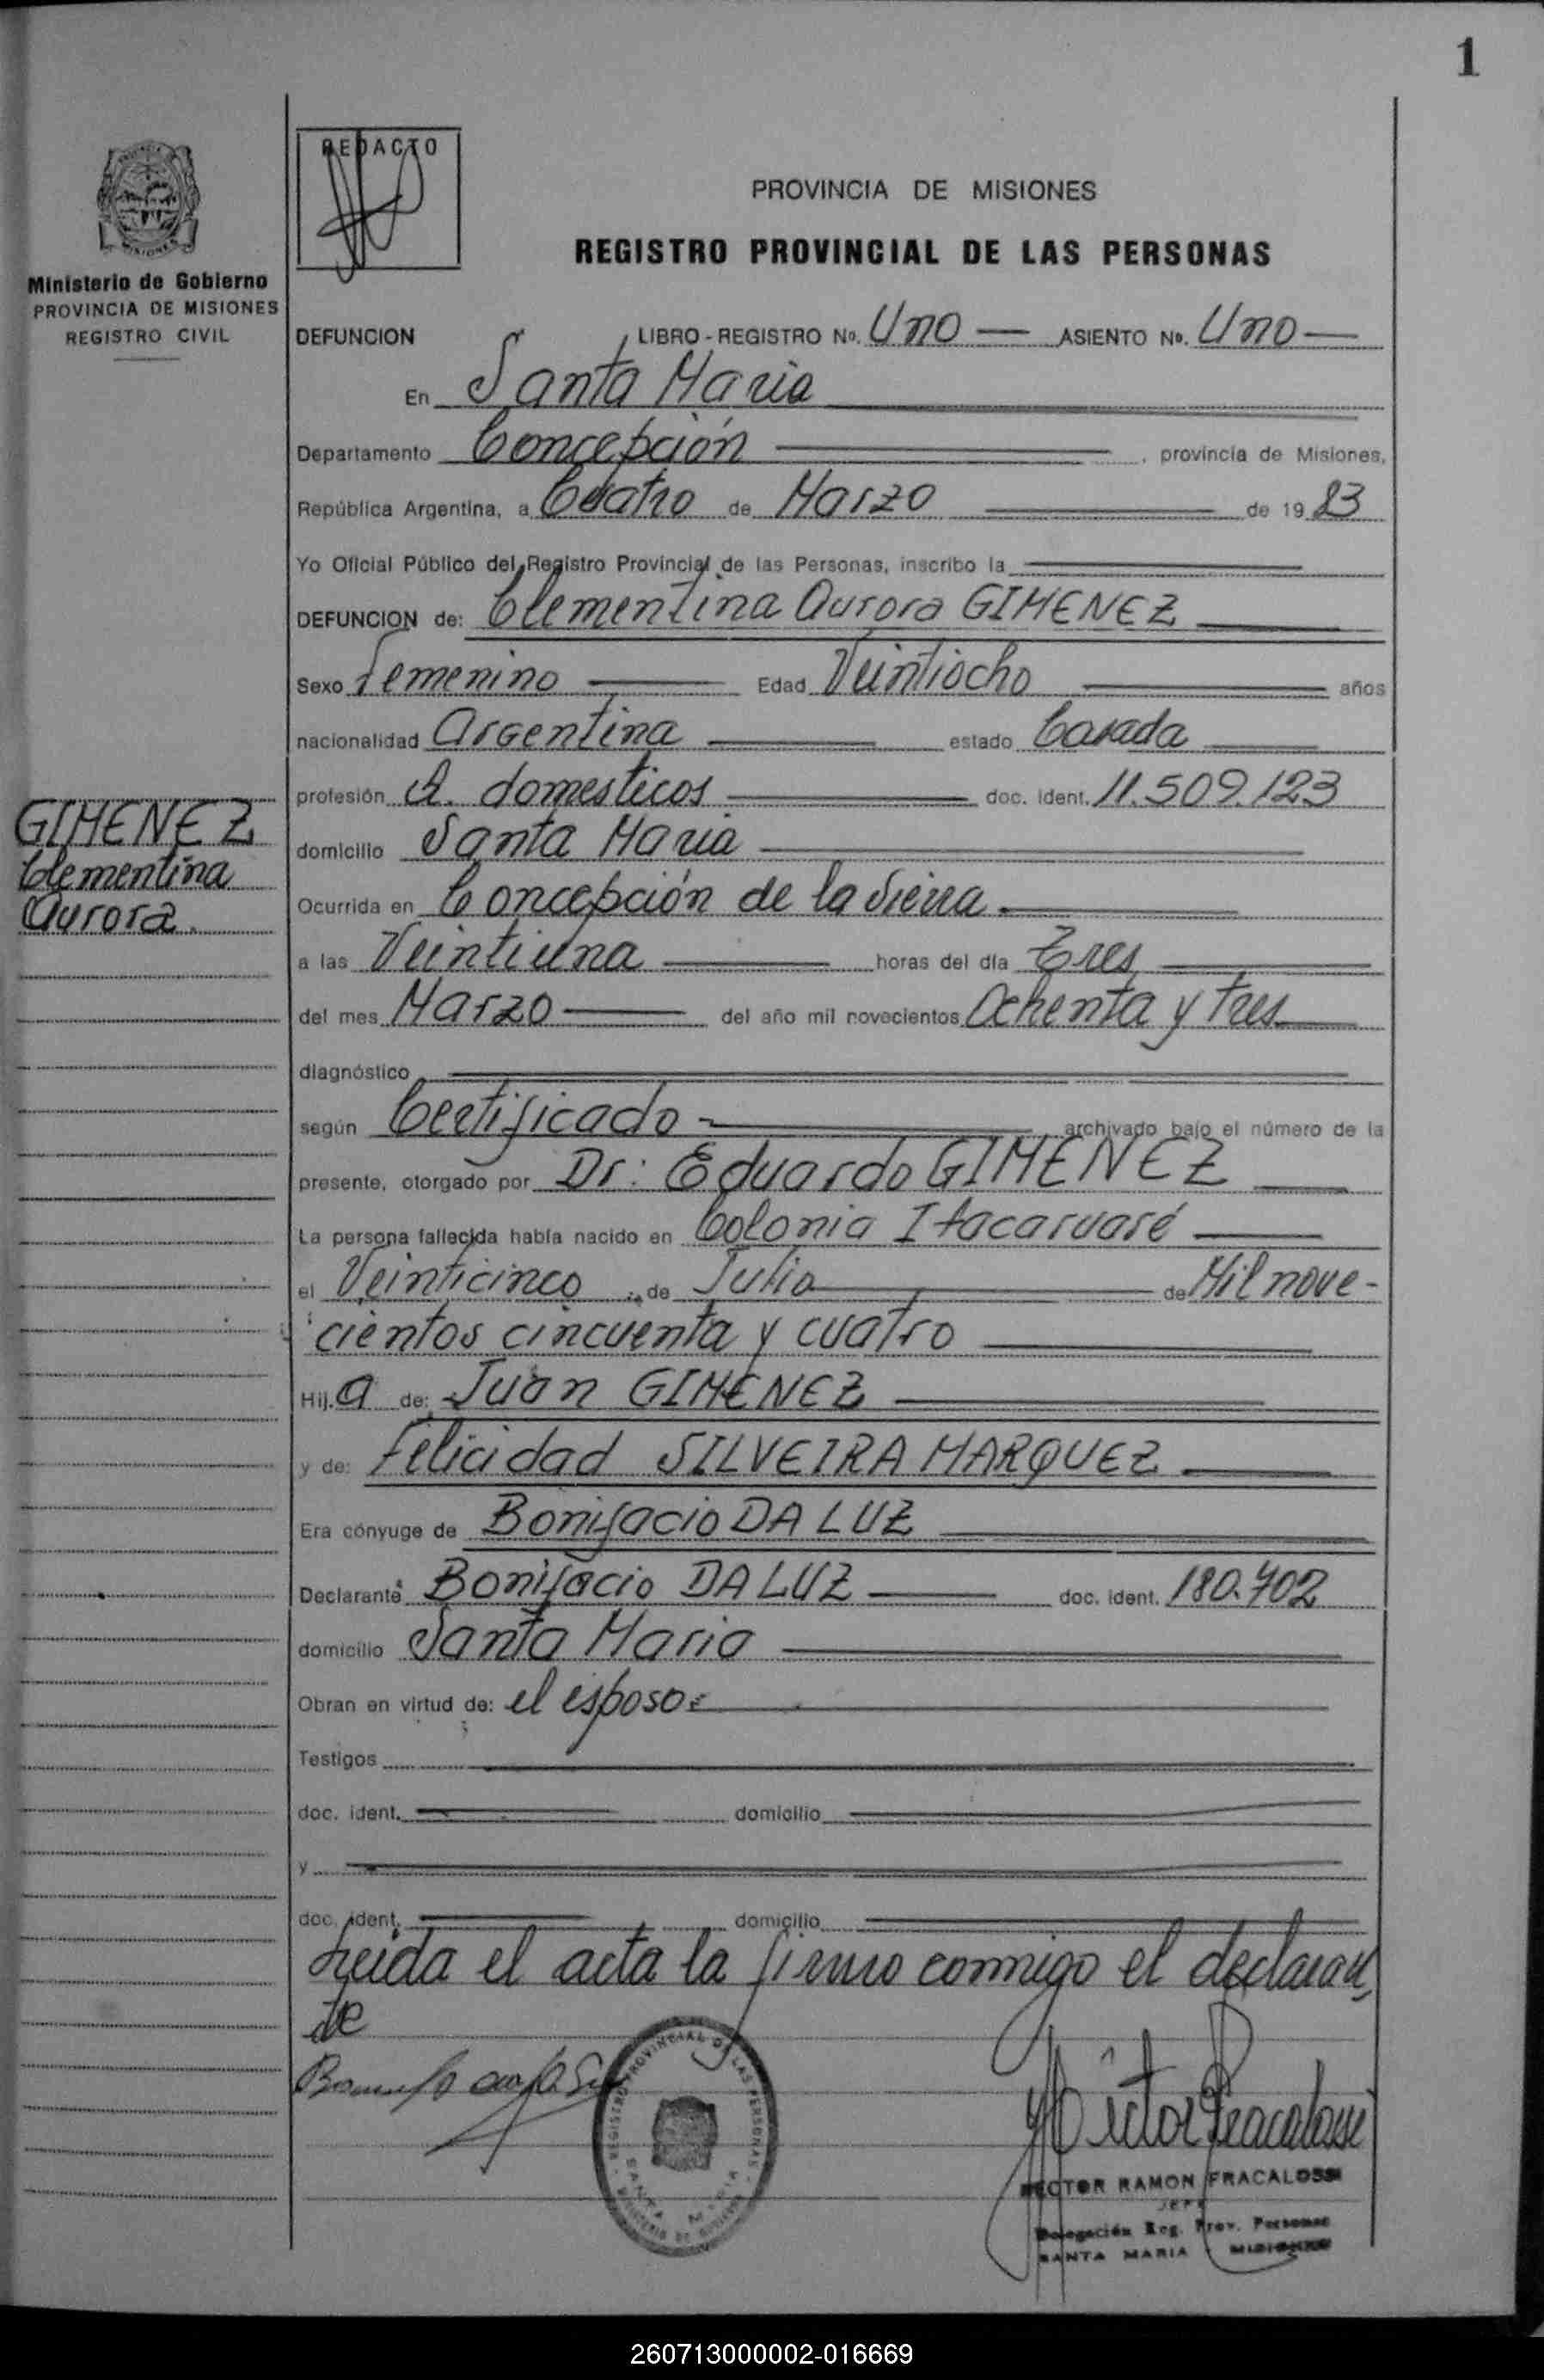 1
REDACTO
PROVINCIA DE MISIONES
REGISTRO PROVINCIAL DE LAS PERSONAS
Ministerio de Gobierno
PROVINCIA DE MISIONES
REGISTRO CIVIL
DEFUNCION LIBRO - REGISTRO No. Uno ASIENTO No. Uno
En Santa Maria
Departamento Concepción, provincia de Misiones,
República Argentina, a Cuatro de Marzo de 1983
Yo Oficial Público del Registro Provincial de las Personas, inscribo la
DEFUNCION de: Clementina Aurora GIMENEZ
Sexo Femenino Edad Veintiocho años
nacionalidad Argentina estado Casada
profesión Q. domesticos doc. ident. 11.509.123
GIMENEZ
Clementina
Aurora.
domicilio Santa Maria
Ocurrida en Concepción de la Sierra.
a las Veintiuna horas del día Tres
del mes Marzo del año mil novecientos Ochenta y tres
diagnóstico
según Certificado archivado bajo el número de la
presente, otorgado por Dr: Eduardo GIMENEZ
La persona fallecida había nacido en Colonia Itacaruaré
el Veinticinco de Julio de Mil nove-
cientos cincuenta y cuatro
Hij.a de: Juan GIMENEZ
y de: Felicidad SILVEIRA MARQUEZ
Era cónyuge de Bonifacio DA LUZ
Declarante Bonifacio DA LUZ doc. ident. 180.702
domicilio Santa Maria
Obran en virtud de: el esposo
Testigos
doc. ident. domicilio
y
doc. ident. domicilio
Leida el acta la firmo conmigo el declaran
te
REGISTRO PROVINCIAL DE LAS PERSONAS
SANTA MARIA
HECTOR RAMON FRACALOSSI
JEFE
Delegación Reg. Prov. Personas
SANTA MARIA MISIONES
260713000002-016669